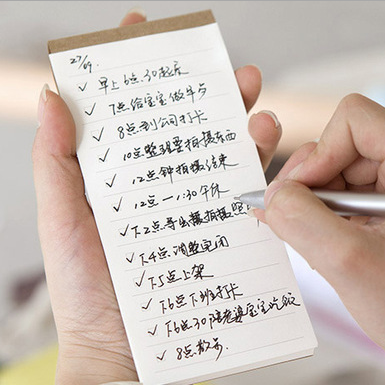 27/09.
✓ 早上6点30起床
✓ 7点给宝宝做早步
✓ 8点到公司打卡
✓ 10点整理要拍摄东西
✓ 12点钟拍摄结束
✓ 12点—1:30午休
✓ 下2点导出摄拍摄照
✓ 下4点调整完闭
✓ 下5点上架
✓ 下6点下班打卡
✓ 下6点30陪老婆宝宝吃饭
✓ 8点散步.